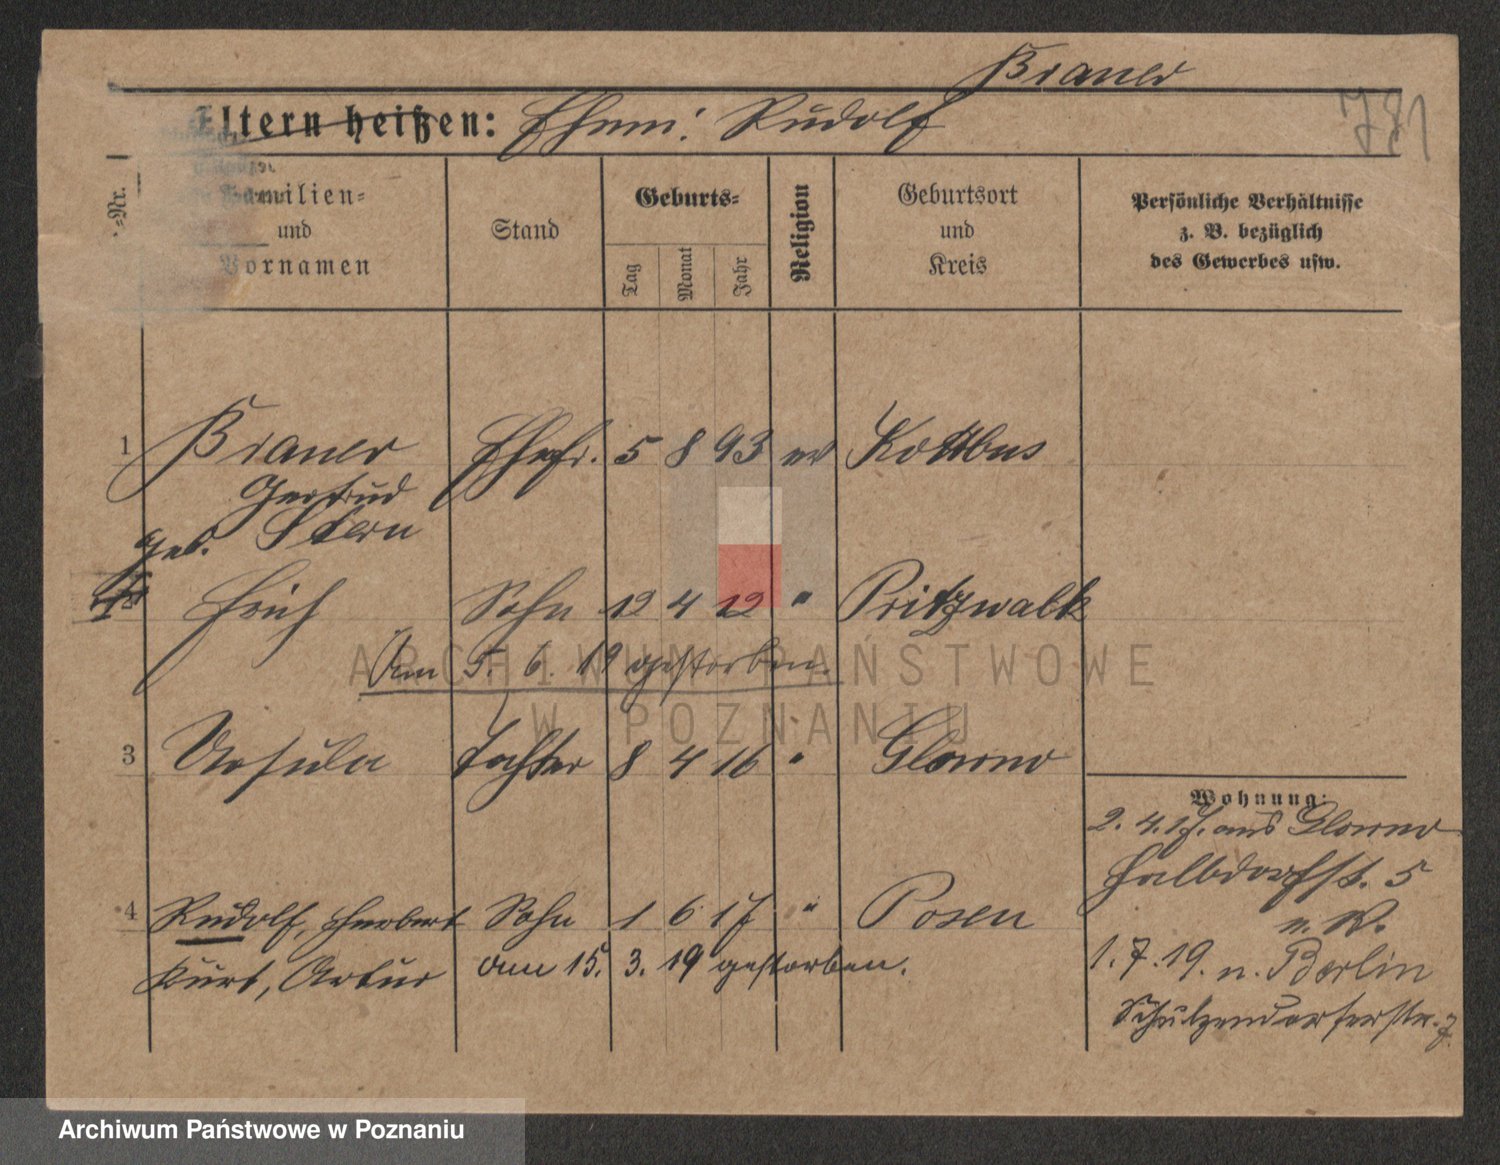 Braner
Eltern heißen: Ehem: Rudolf
781
Nr.
Familien=
und
Vornamen
Stand
Geburts=
Tag
Monat
Jahr
Religion
Geburtsort
und
Kreis
Persönliche Verhältnisse
z. B. bezüglich
des Gewerbes usw.
1 Braner Ehefr. 5 8 93 ev Kottbus
Gertrud
geb. Stern
2 Erich Sohn 12 4 12 " Pritzwalk
Am 5. 6. 19 gestorben.
3 Ursula Tochter 8 4 16 " Glowno
Wohnung:
2. 4. 17. aus Glowno
Halbdorfstr. 5
4 Rudolf, Herbert Sohn 1 6 17 " Posen
n. W.
Kurt, Artur am 15. 3. 19 gestorben.
1. 7. 19. n. Berlin
Schulzendorferstr. 7.
ARCHIWUM PAŃSTWOWE
W POZNANIU
Archiwum Państwowe w Poznaniu